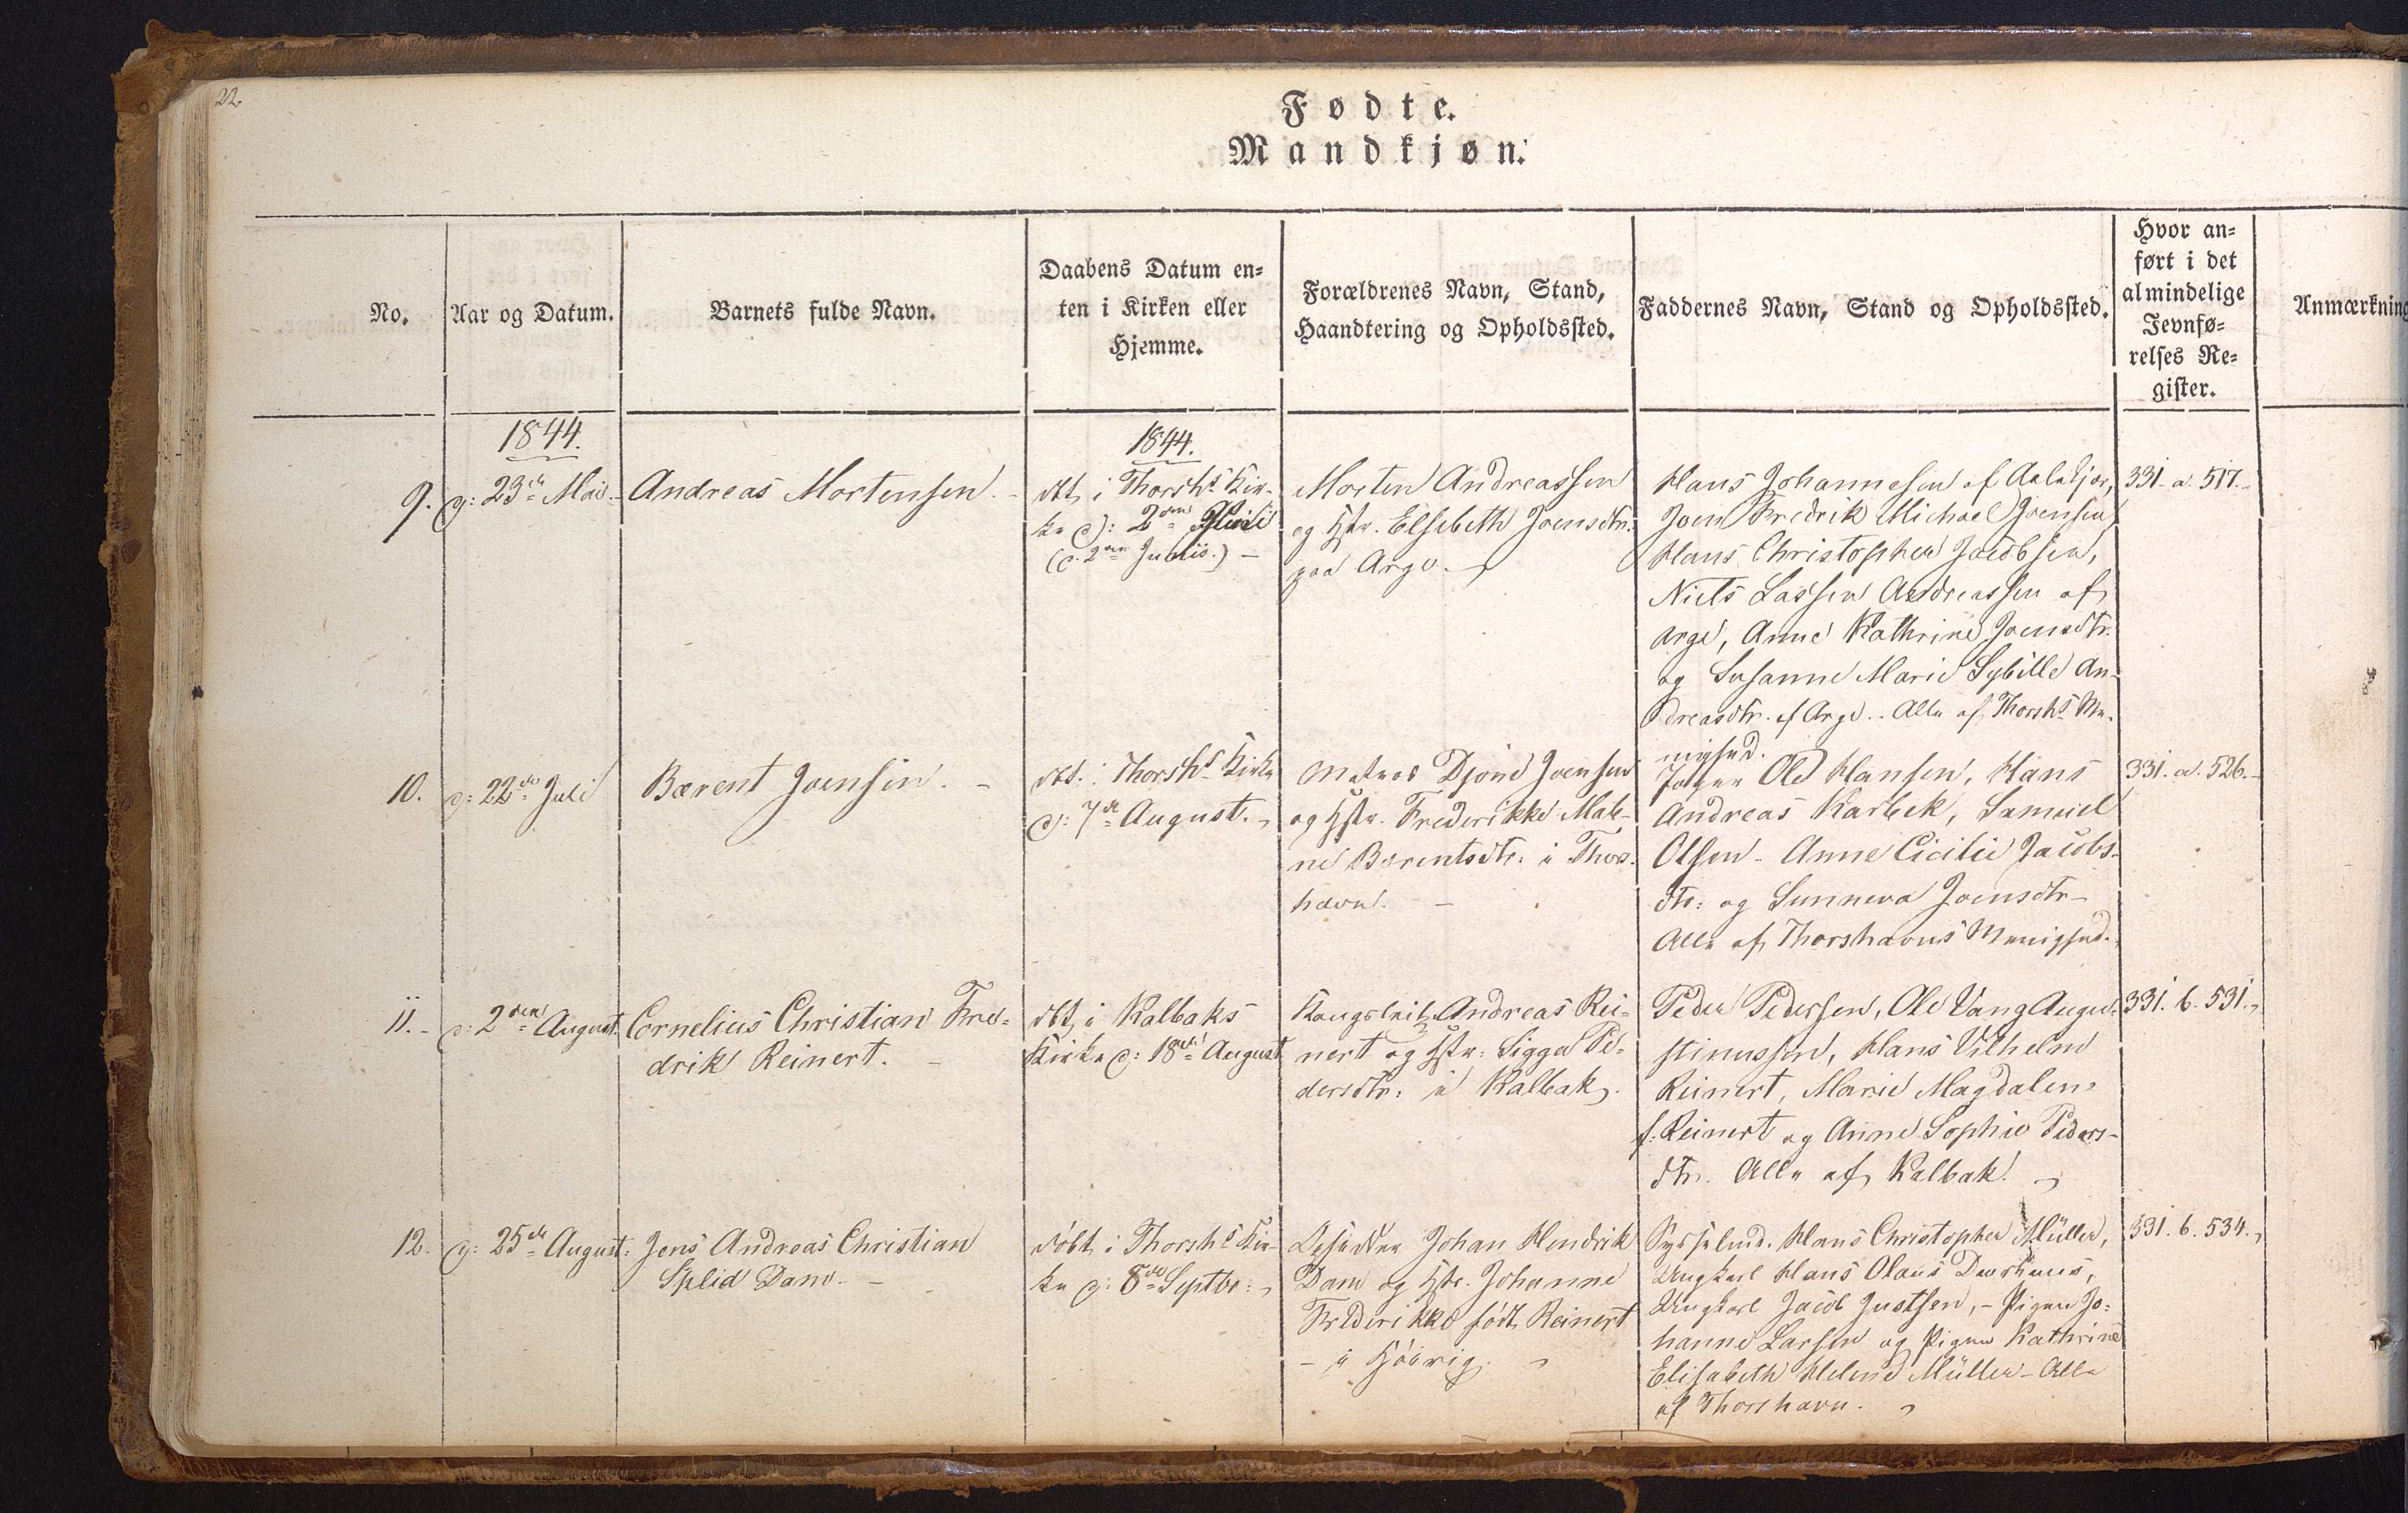 22.
Fødte.
Mandkjøn.
No.
Aar og Datum.
Barnets fulde Navn.
Daabens Datum en=
ten i Kirken eller
Hjemme.
Forældrenes Navn, Stand,
Haandtering og Opholdssted.
Faddernes Navn, Stand og Opholdssted.
Hvor an=
ført i det
almindelige
Jevnfø=
relses Re=
gister.
Anmærkning
1844.
1844.
9.
d: 23de Mai
Andreas Mortensen.
dbt i Thorshs Kir-
ke d: 2den
(d. 2den Junii.) -
Morten Andreassen
og Hstr. Elsebeth Joensdtr.
paa Arge.
Hans Johannesen af
Joen Fredrik Michael Joensen,
Hans Christopher Jacobsen,
Niels Lassen Andreassen af
Arge, Anne Kathrine Joensdtr.
og Susanne Marie Sybille An-
dreasdtr. af Arge. Alle af Thorshs Me-
nighed.
331. a. 517.
10.
d: 22de Juli
Bærent Joensen. -
dbt. i Thorshs Kirke
d: 7de August.
Matros Djone Joensen
og Hstr. Frederikke Male-
ne Bærentsdtr: i Thors-
havn. -
Jæger Ole Hansen, Hans
Andreas Karbek, Samuel
Olsen - Anne Cicilie Jacobs-
dtr: og Sunneva Joensdtr -
Alle af Thorshavns Menighed.
331. a. 526.
11.
d: 2den August
Cornelius Christian Fre=
drik Reinert. -
dbt i Kalbaks
Kirke d: 18de August
Andreas Rei=
nert og Hstr: Sigga Pe=
dersdtr: i Kalbak.
Peder Pedersen, Ole Vang Augu=
stinussen, Hans Vilhelm
Reinert, Marie Magdalene
f: Reinert og Anne Sophie Peders-
dtr. Alle af Kalbak.
331. b. 531.
12.
d: 25de August:
Jens Andreas Christian
Splid Dam. -
døbt i Thorshs Kir-
ke d: 8de Septbr:
Opsidder Johan Hendrik
Dam og Hstr. Johanne
Frederikke født Reinert
- i Hjøivig.
Sysselmd. Hans Christopher Müller,
Ungkarl Hans Olaus
Ungkarl Jacob Justsen, - Pigen Jo=
hanne Larsen og Pigen Kathrine
Elisabeth Helene Müller - Alle
af Thorshavn.
331. b. 534.